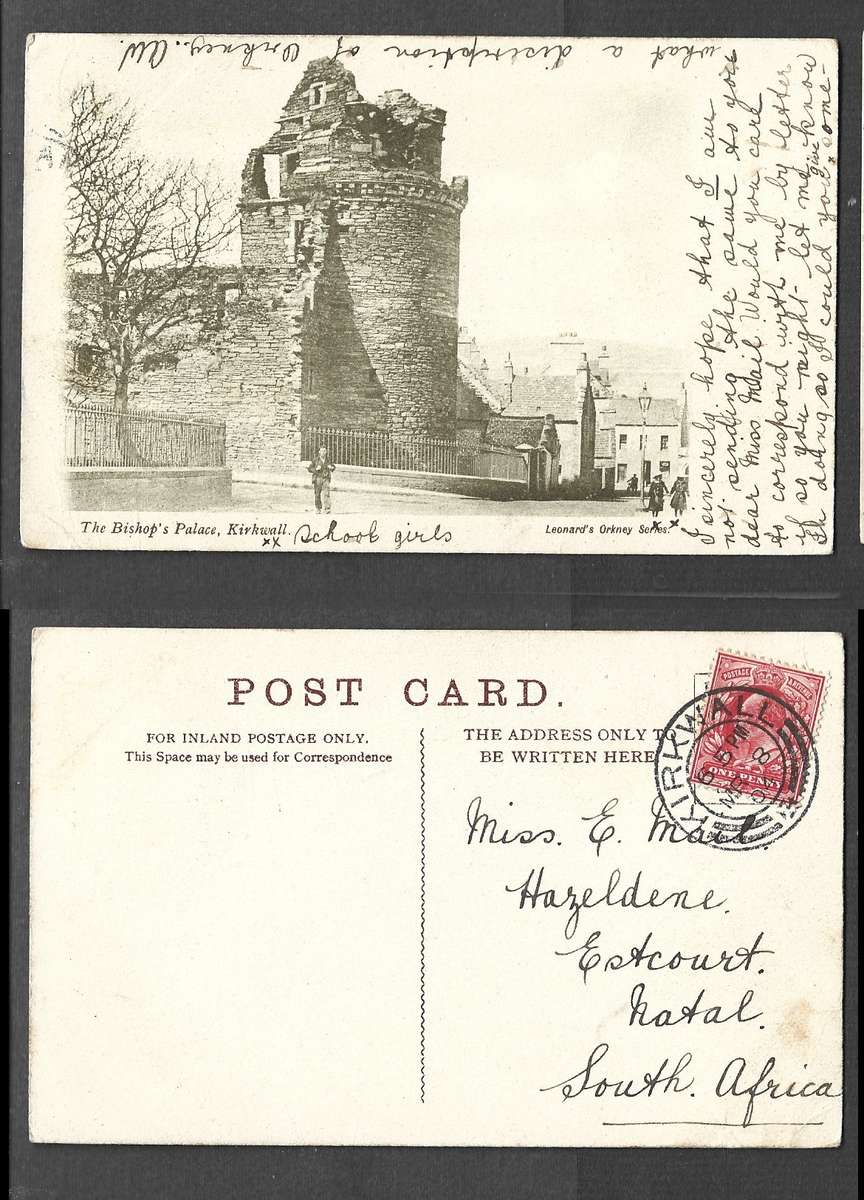 I sincerely hope that I am
not sending the same to you
dear Miss Mail. Would you care
to correspond with me by letter
if so you might let me know
In doing so I could you give some-
what a discription of Orkney. AW.
The Bishop's Palace, Kirkwall.
xx School girls
Leonard's Orkney Series.
x x
POST CARD.
FOR INLAND POSTAGE ONLY.
This Space may be used for Correspondence
THE ADDRESS ONLY TO
BE WRITTEN HERE
POSTAGE
ONE PENNY
KIRKWALL
8 15 PM
MR 8
Miss. E. Mail.
Hazeldene.
Estcourt.
Natal.
South. Africa